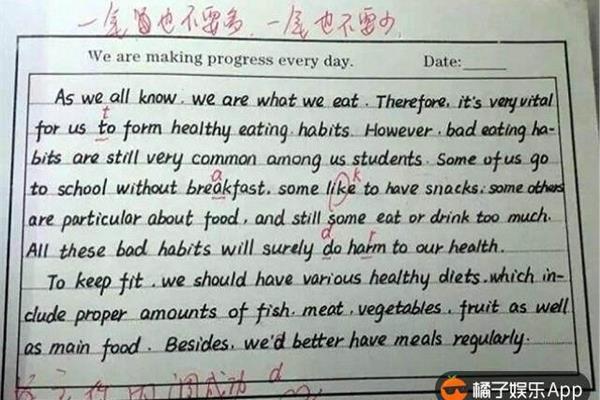 一定留也不要多,一定也不要少
We are making progress every day. Date:
As we all know, we are what we eat. Therefore, it's very vital
t
for us to form healthy eating habits. However, bad eating ha-
bits are still very common among us students. Some of us go
a k
to school without breakfast, some like to have snacks; some others
are particular about food, and still some eat or drink too much.
d r
All these bad habits will surely do harm to our health.
To keep fit, we should have various healthy diets, which in-
clude proper amounts of fish, meat, vegetables, fruit as well
as main food. Besides, we'd better have meals regularly.
d
橘子娱乐App